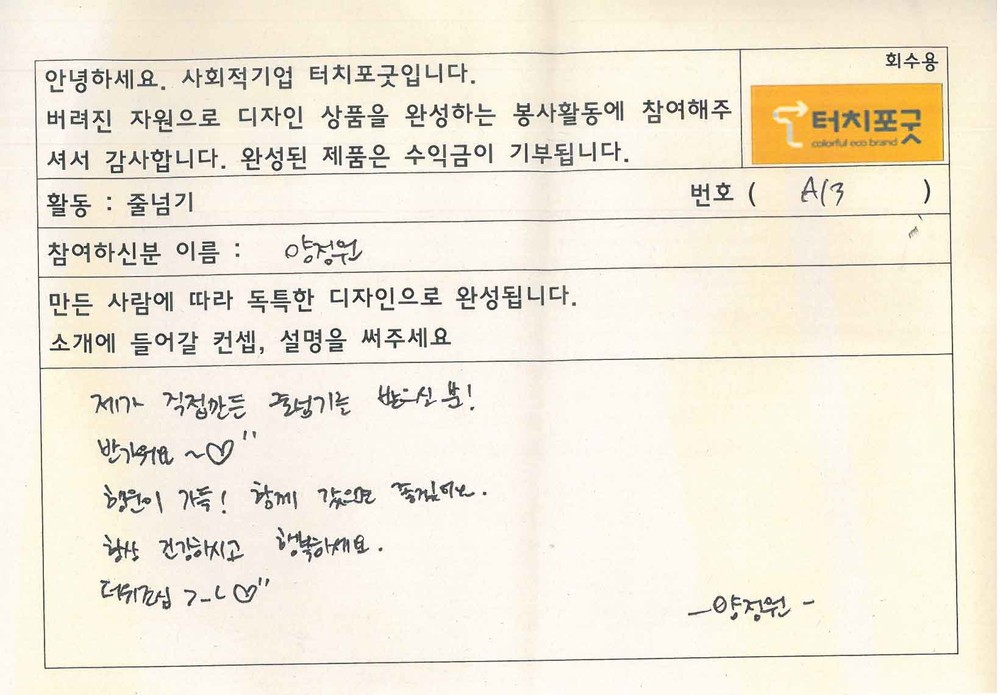 회수용
안녕하세요. 사회적기업 터치포굿입니다.
버려진 자원으로 디자인 상품을 완성하는 봉사활동에 참여해주
셔서 감사합니다. 완성된 제품은 수익금이 기부됩니다.
터치포굿
colorful eco brand
활동 : 줄넘기
번호 ( A13 )
참여하신분 이름 : 양정원
만든 사람에 따라 독특한 디자인으로 완성됩니다.
소개에 들어갈 컨셉, 설명을 써주세요
제가 직접만든 줄넘기를 받으신 분!
반가워요 ~♡"
행운이 가득! 함께
항상 건강하시고 행복하세요.
더위조심 ㄱ_ㄴ♡"
- 양정원 -